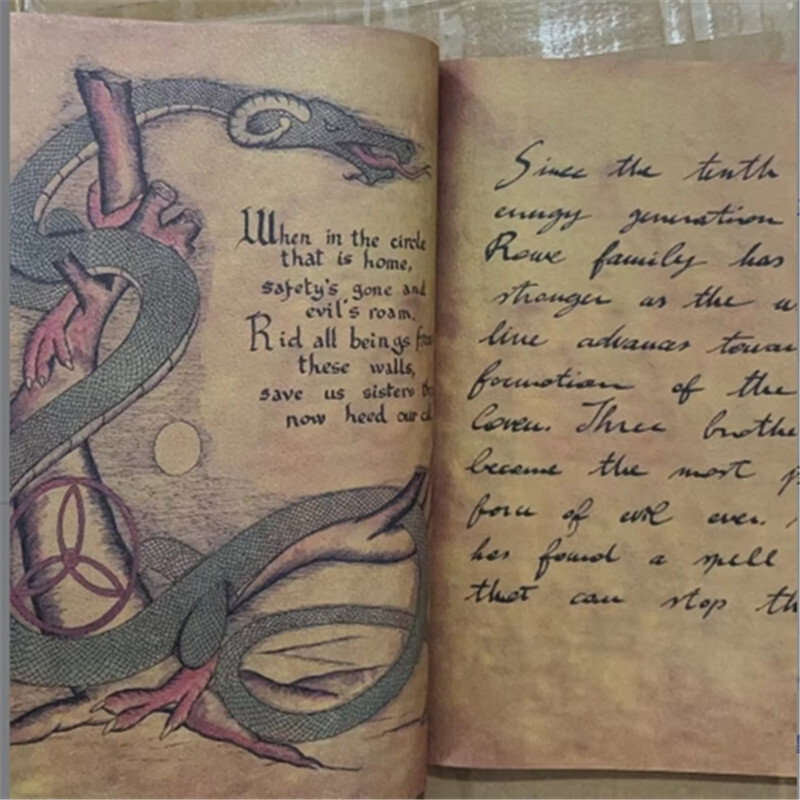 When in the circle
that is home,
safety's gone and
evil's roam.
Rid all beings
these walls,
save us sisters
now heed our
Since the tenth
energy generation
Rowe family has
stronger as the
line advances
formation of the
Coven. Three
become the most
force of evil ever.
has found a spell
that can stop